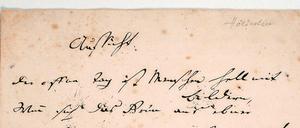 Hölderlin
Aussicht.
Der offne Tag ist Menschen hell mit
Bildern,
Wenn sich das Grün aus ebner